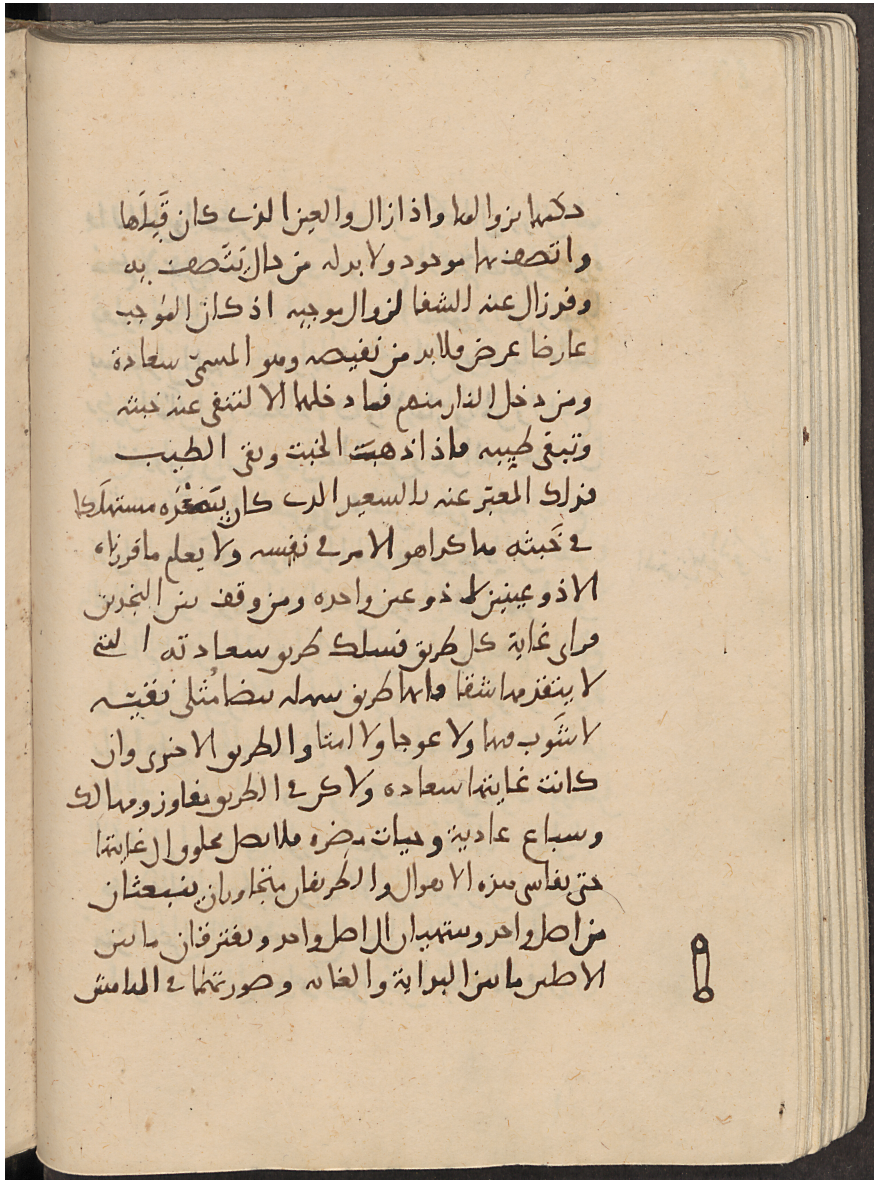 حكمها بزوالها واذا زال والعين الذي كان قبلها
واتصف بها موجود ولا بد له من حال يتصف به
وقد زال عنه الشقا لزوال موجبه اذ كان الموجب
عارضا عرض فلا بد من نقيضه وهو المسمى سعادة
ومن دخل النار منهم فما دخلها الا لتنفى عنه خبثه
وتبقى طيبه فاذا ذهب الخبث وبقى الطيب
فذلك المعبر عنه بالسعيد الذي كان سعده مستهلكا
في خبثه هاكذا هو الامر في نفسه ولا يعلم ما قررناه
الا ذو عينين لا ذو عين واحده ومن وقف بين النجدين
فراى غاية كل طريق فسلك طريق سعادته التي
لا يتقدمها شقا فانها طريق سهله بيضا مثلى نقيه
لا شوب فيها ولا عوجا ولا امتا والطريق الاخرى وان
كانت غايتها سعاده ولاكن في الطريق مفاوز ومهالك
وسباع عادية وحيات مضره فلا يصل مخلوق الى غايتها
حتى يقاسى هذه الاهوال والطريقان متجاوران ينبعثان
من اصل واحد وينتهيان الى اصل واحد ويفترقان ما بين
الاصلين ما بين البداية والغايه وصورتهما في الهامش